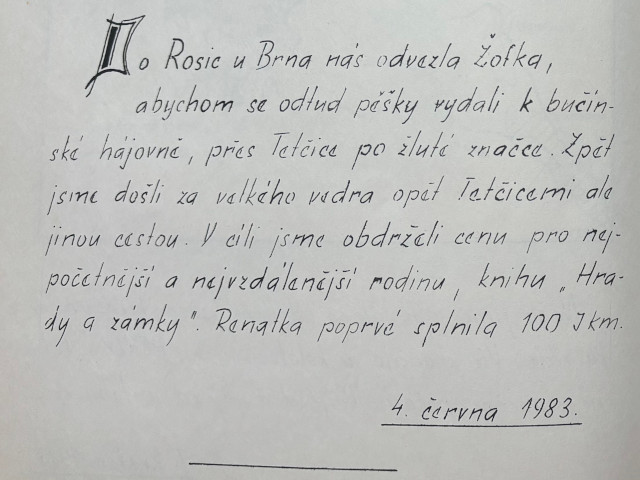 Do Rosic u Brna nás odvezla Žofka,
abychom se odtud pěšky vydali k bučín-
ské hájovně, přes Tetčice po žluté značce. Zpět
jsme došli za velkého vedra opět Tetčicemi ale
jinou cestou. V cíli jsme obdrželi cenu pro nej-
početnější a nejvzdálenější rodinu, knihu „Hra-
dy a zámky". Renatka poprvé splnila 100 Jkm.
4. června 1983.